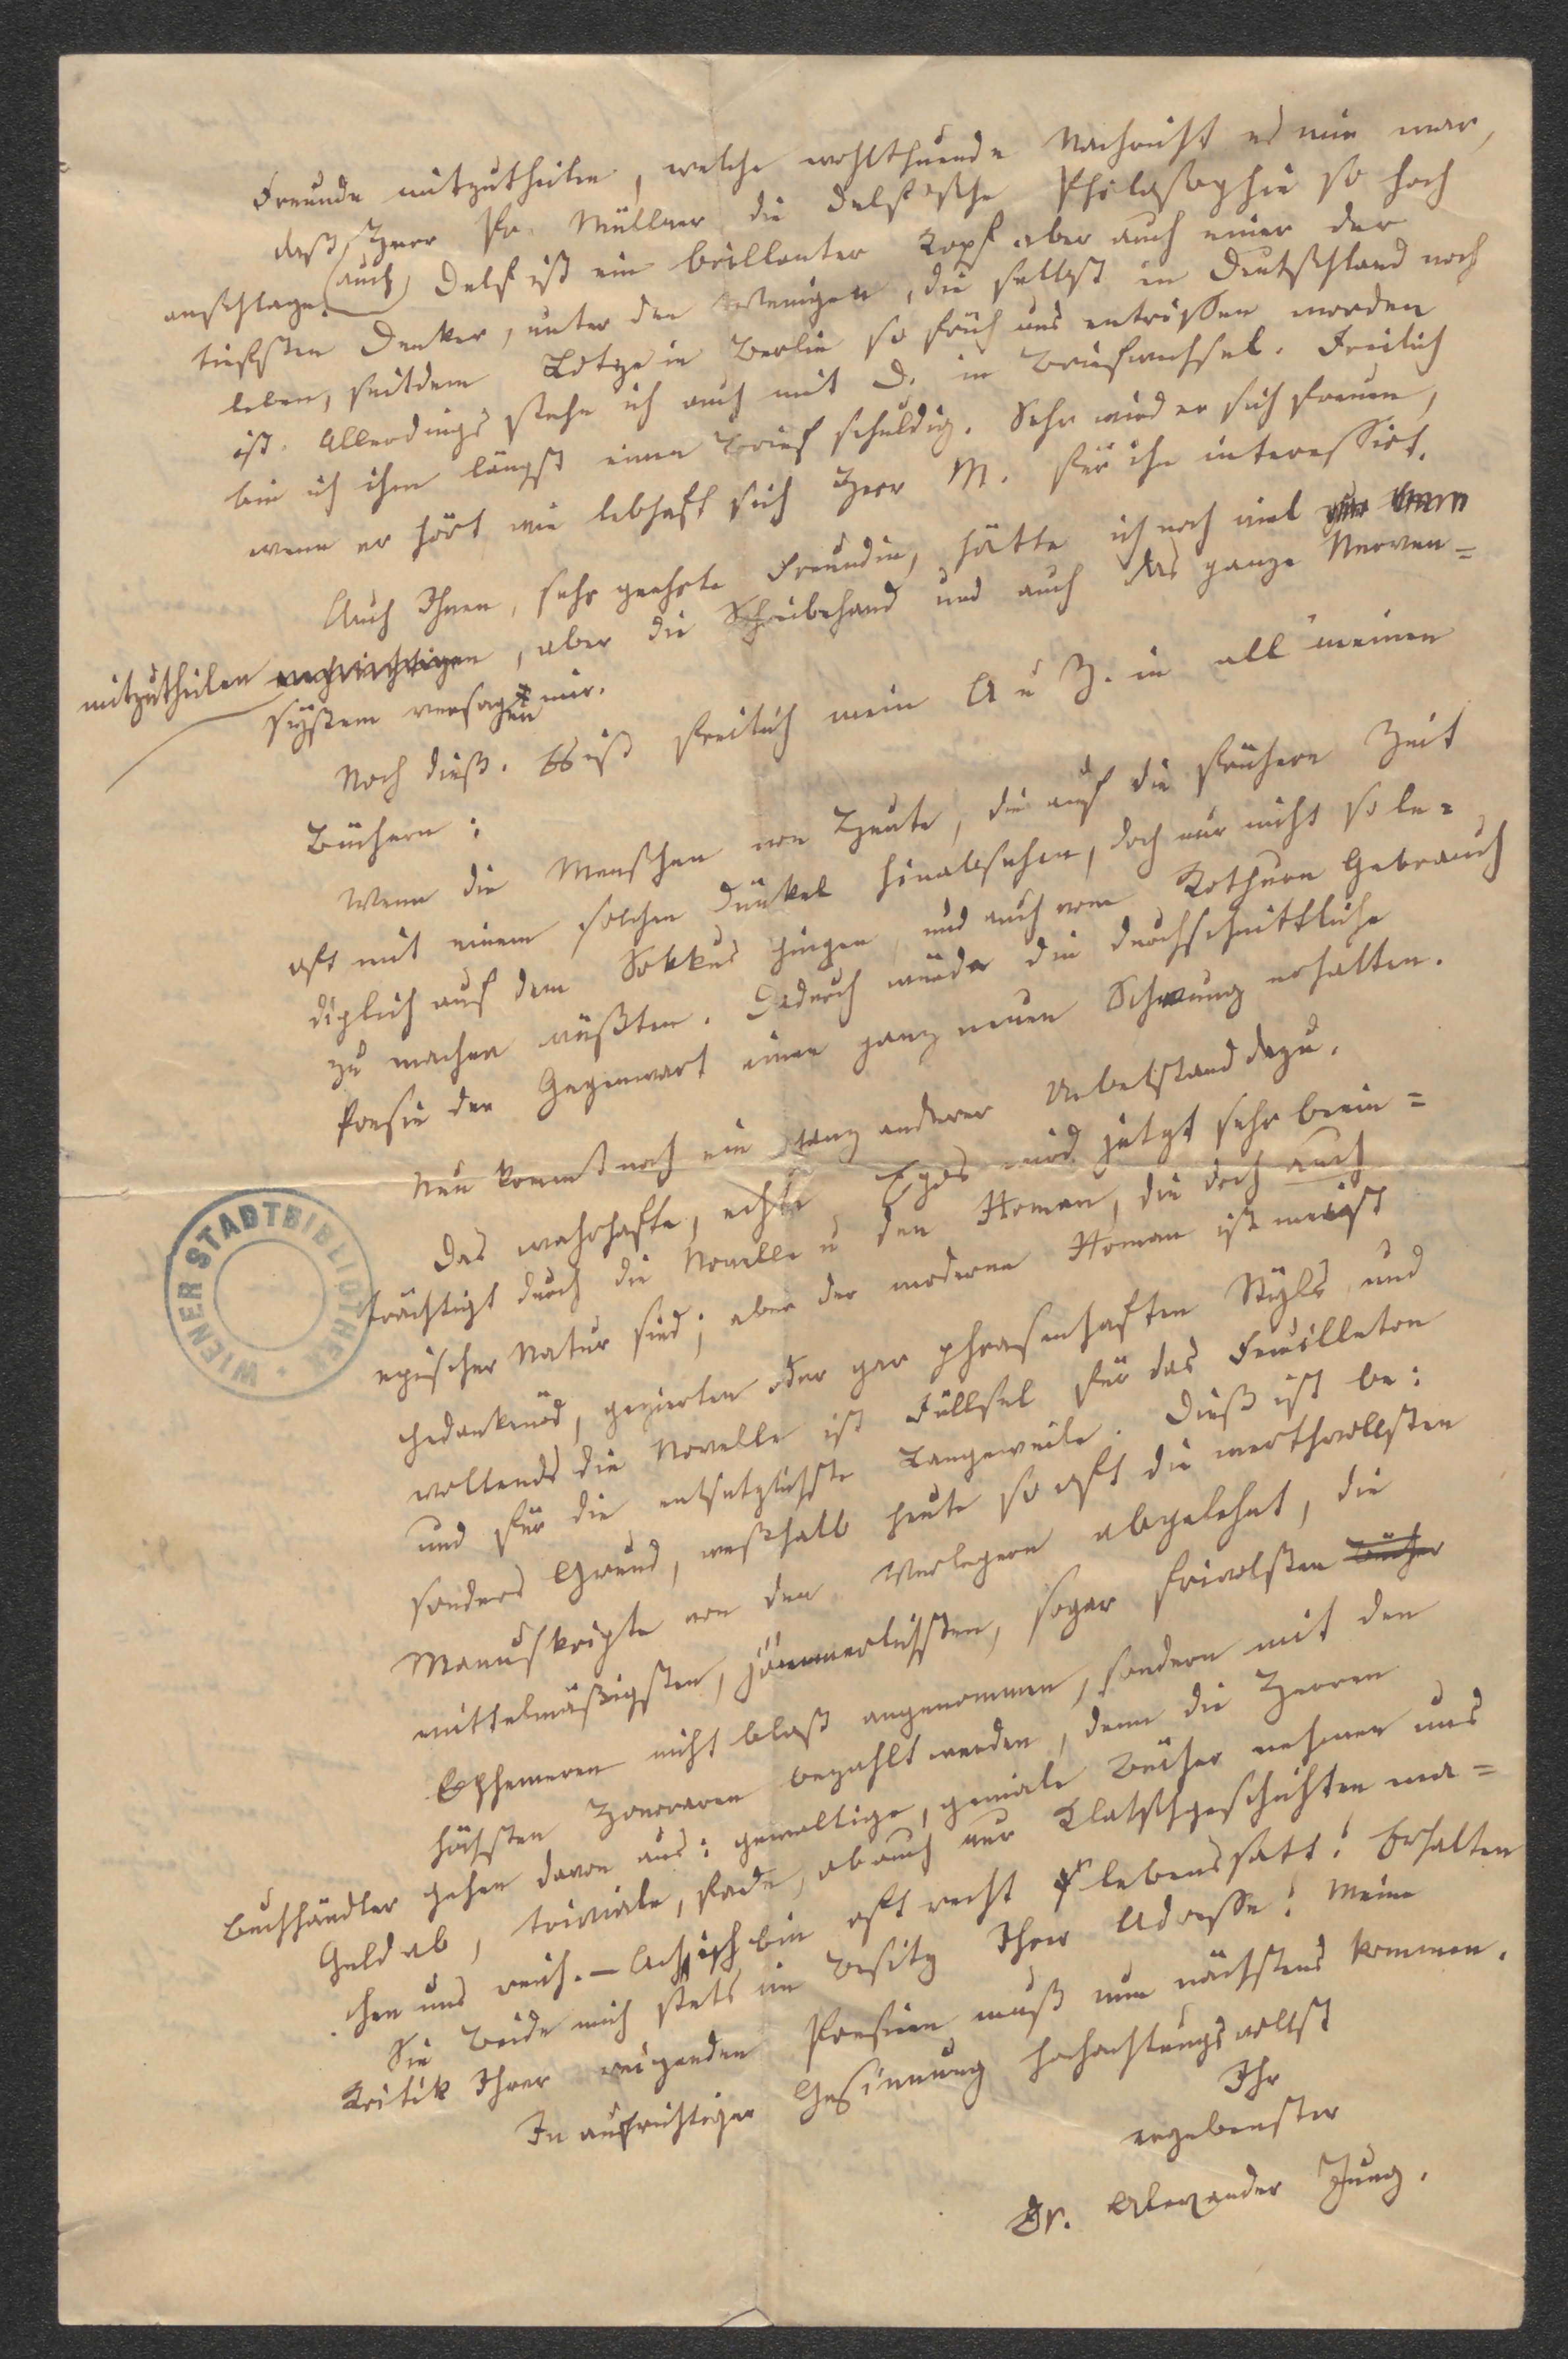 Freunde mitzutheilen, welche wohlthuende Nachricht es mir war,
daß Herr Pr. Müllner die Delffsche Philosophie so hoch
anschlage. (auch) Delff ist ein brillanter Kopf aber auch einer der
tiefsten Denker, unter den Wenigen, die selbst in Deutschland noch
leben, seitdem Lotze in Berlin so früh uns entrissen worden
ist. Allerdings stehe ich auch mit D. in Briefwechsel. Freilich
bin ich ihm längst einen Brief schuldig. Sehr wird er sich freuen,
wenn er hört wie lebhaft sich Herr M. für ihn interessirt.
Auch Ihnen, sehr geehrte Freundin, hätte ich noch viel
mitzutheilen, aber die Schreibehand und auch das ganze Nerven=
system versagen mir.
Noch dieß. Es ist freilich mein A u Z. in all' meinen
Büchern:
Wenn die Menschen von Heute, die auf die frühere Zeit
oft mit einem solchen Dünkel hinabsehen, doch nur nicht so le=
diglich auf dem Sokkus gingen, und auch vom Kothurn Gebrauch
zu machen wüßten. Dadurch würde die durchschnittliche
Poesie der Gegenwart einen ganz neuen Schwung erhalten.
Nun kommt noch ein ganz anderer Uebelstand dazu.
Das wahrhafte, echte Epos wird jetzt sehr beein=
trächtigt durch die Novelle u den Roman, die doch auch
epischer Natur sind; aber der moderne Roman ist meist
gedankenöd, gezierten oder gar phrasenhaften Styls, und
vollends die Novelle ist Füllsel für das Feuilleton
und für die entsetzlichste Langeweile. Dieß ist be=
sonders Grund, weßhalb heute so oft die werthvollsten
Manuskripte von den Verlegern abgelehnt, die
mittelmäßigsten, jämmerlichsten, sogar frivolsten Bücher
Ephemeren nicht bloß angenommen, sondern mit den
höchsten Honoraren bezahlt werden, denn die Herren
Buchhändler gehen davon aus: gewaltige, geniale Bücher nehmen uns
Geld ab, triviale, fade, ob auch nur Klatschgeschichten ma=
chen uns reich. – Ach, ich bin oft recht lebenssatt! Erhalten
Sie Beide mich stets im Besitz Ihrer Adresse! Meine
Kritik Ihrer reizenden Poesieen muß nun nächstens kommen.
In aufrichtiger Gesinnung hochachtungsvollst
Ihr
ergebenster
Dr. Alexander Jung.
WIENER STADTBIBLIOTHEK